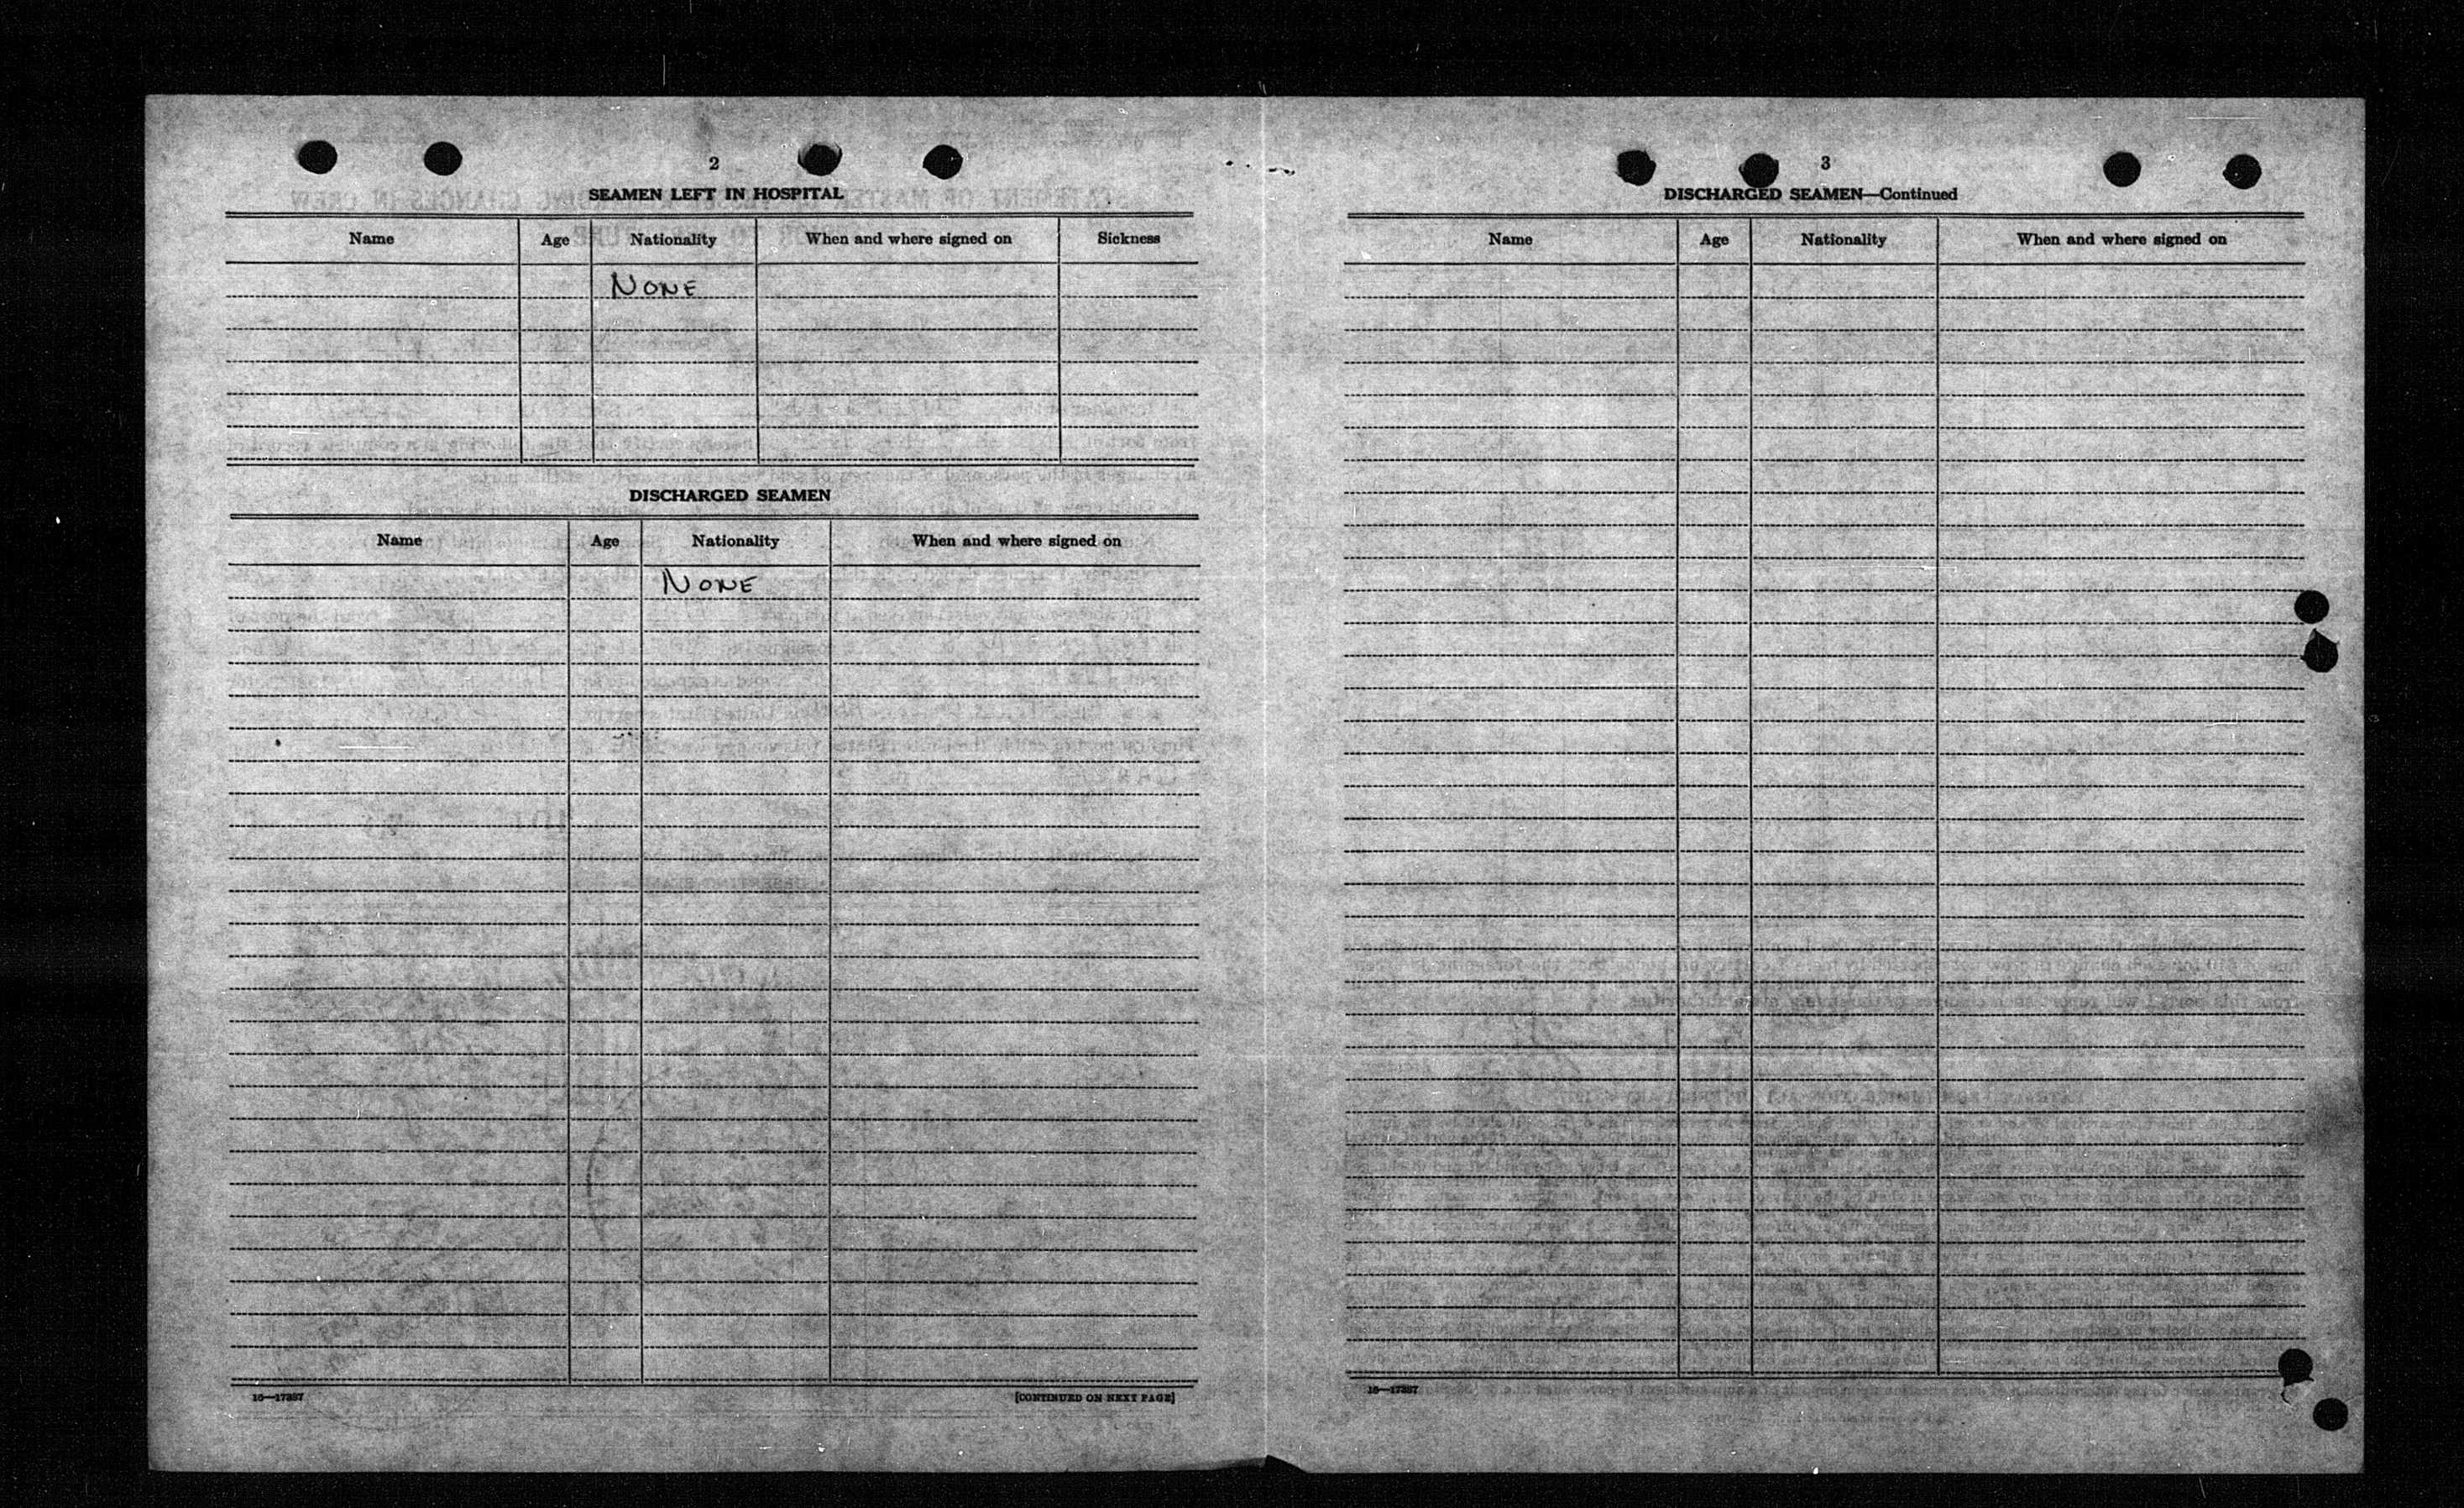 2
SEAMEN LEFT IN HOSPITAL
Name Age Nationality When and where signed on Sickness
NONE
DISCHARGED SEAMEN
Name Age Nationality When and where signed on
NONE
16—17287 [CONTINUED ON NEXT PAGE]
3
DISCHARGED SEAMEN—Continued
Name Age Nationality When and where signed on
16—17287